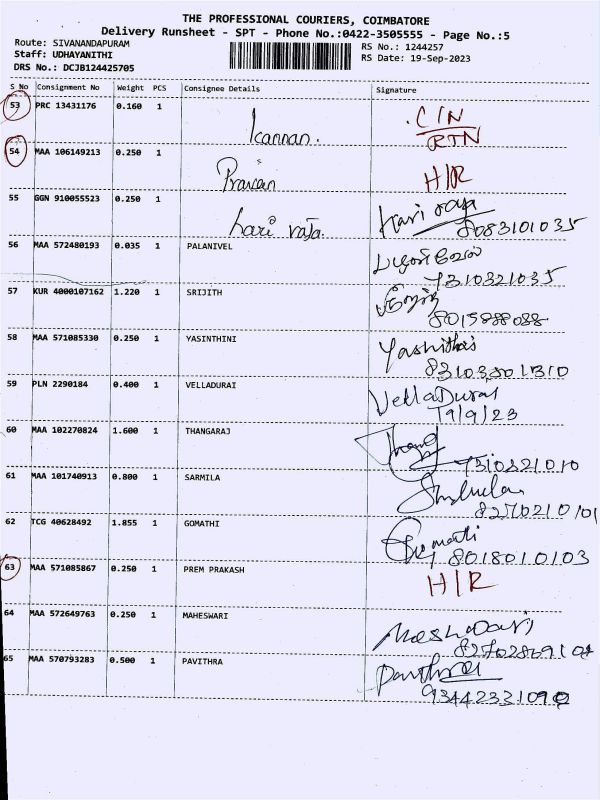 THE PROFESSIONAL COURIERS, COIMBATORE
Delivery Runsheet - SPT - Phone No.:0422-3505555 - Page No.:5
Route: SIVANANDAPURAM RS No.: 1244257
Staff: UDHAYANITHI RS Date: 19-Sep-2023
DRS No.: DCJB124425705
S No Consignment No Weight PCS Consignee Details Signature
53 PRC 13431176 0.160 1 Kannan. C/N
RTN
54 MAA 106149213 0.250 1 Pravin H/R
55 GGN 910055523 0.250 1 hari raja. Hari raja
8083101035
56 MAA 572480193 0.035 1 PALANIVEL
7310321035
57 KUR 4000107162 1.220 1 SRIJITH
8015888088
58 MAA 571085330 0.250 1 YASINTHINI
59 PLN 2290184 0.400 1 VELLADURAI VellaDurai
19/9/23
60 MAA 102270824 1.600 1 THANGARAJ
7310821010
61 MAA 101740913 0.800 1 SARMILA
8270210101
62 TCG 40628492 1.855 1 GOMATHI Gomati
8018010103
63 MAA 571085867 0.250 1 PREM PRAKASH H/R
64 MAA 572649763 0.250 1 MAHESWARI
65 MAA 570793283 0.500 1 PAVITHRA